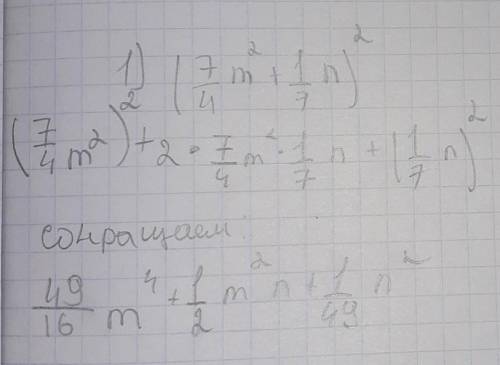 1) (7/4 m² + 1/7 n)²
(7/4 m²)² + 2 · 7/4 m² · 1/7 n + (1/7 n)²
сокращаем:
49/16 m⁴ + 1/2 m² n + 1/49 n²